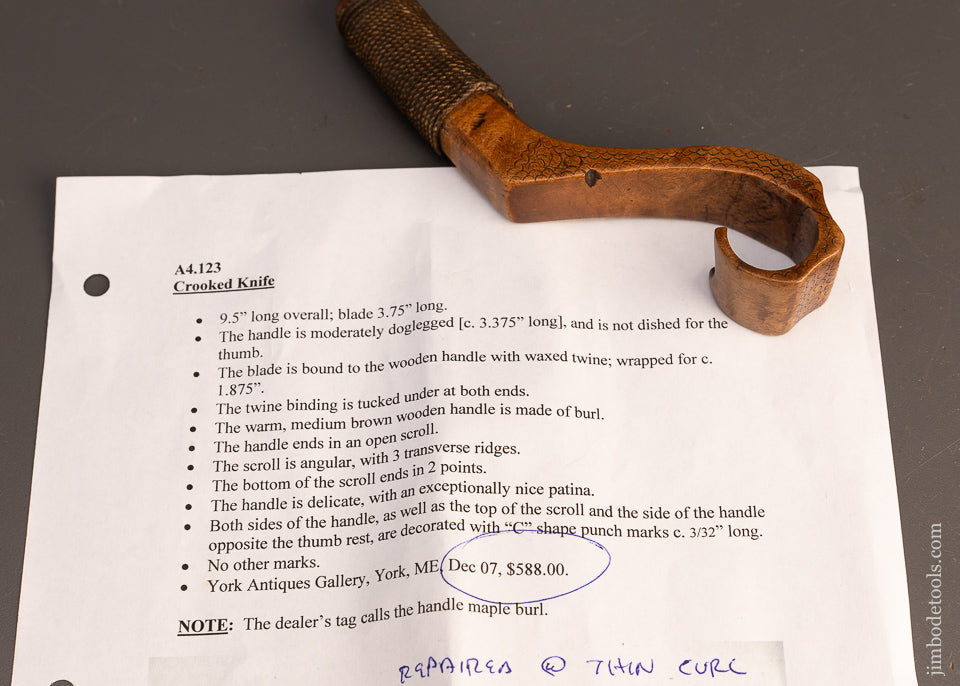 A4.123
Crooked Knife
• 9.5” long overall; blade 3.75” long.
• The handle is moderately doglegged [c. 3.375” long], and is not dished for the
thumb.
• The blade is bound to the wooden handle with waxed twine; wrapped for c.
1.875”.
• The twine binding is tucked under at both ends.
• The warm, medium brown wooden handle is made of burl.
• The handle ends in an open scroll.
• The scroll is angular, with 3 transverse ridges.
• The bottom of the scroll ends in 2 points.
• The handle is delicate, with an exceptionally nice patina.
• Both sides of the handle, as well as the top of the scroll and the side of the handle
opposite the thumb rest, are decorated with “C” shape punch marks c. 3/32” long.
• No other marks.
• York Antiques Gallery, York, ME, Dec 07, $588.00.
NOTE: The dealer’s tag calls the handle maple burl.
REPAIRED @ THIN CURL
jimbodetools.com